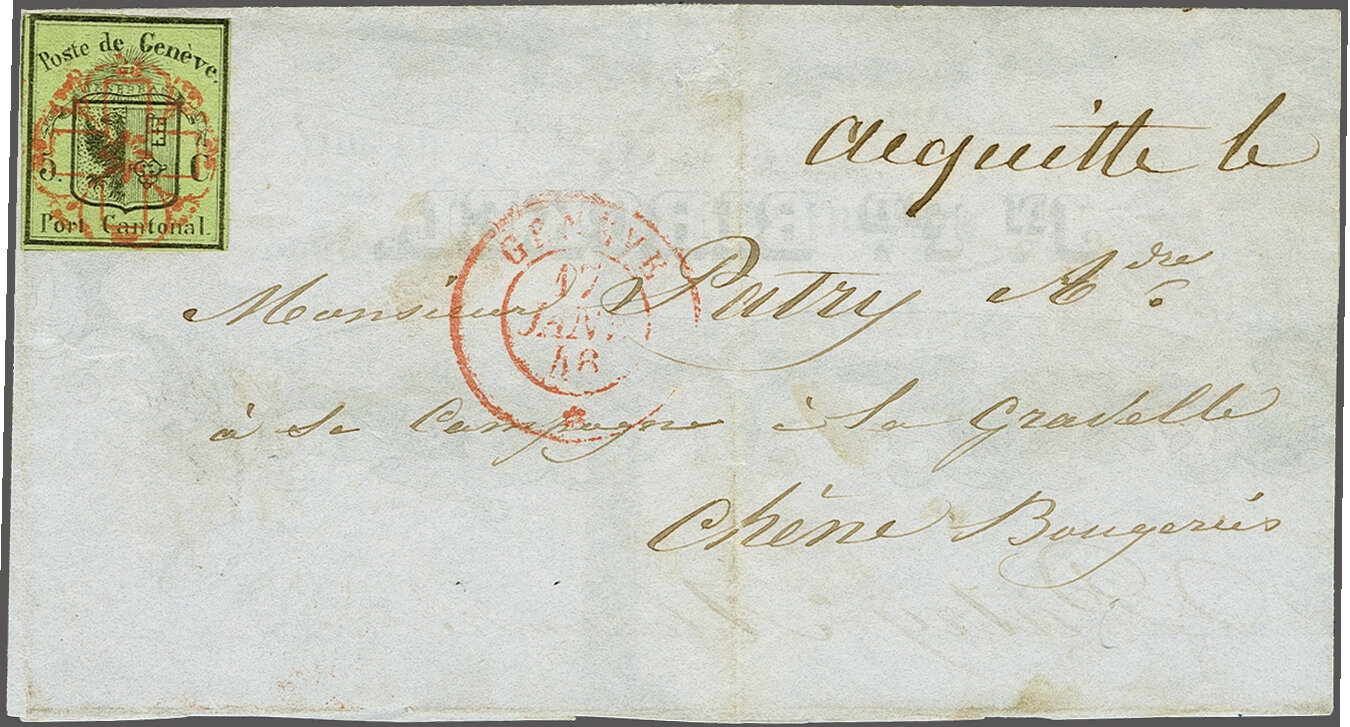 Poste de Genève.
5. C
Port Cantonal.
acquitté le
GENÈVE
17
JANV
48
Monsieur Patry A.dre
à sa Campagne à la Gradelle
Chêne Bougeries